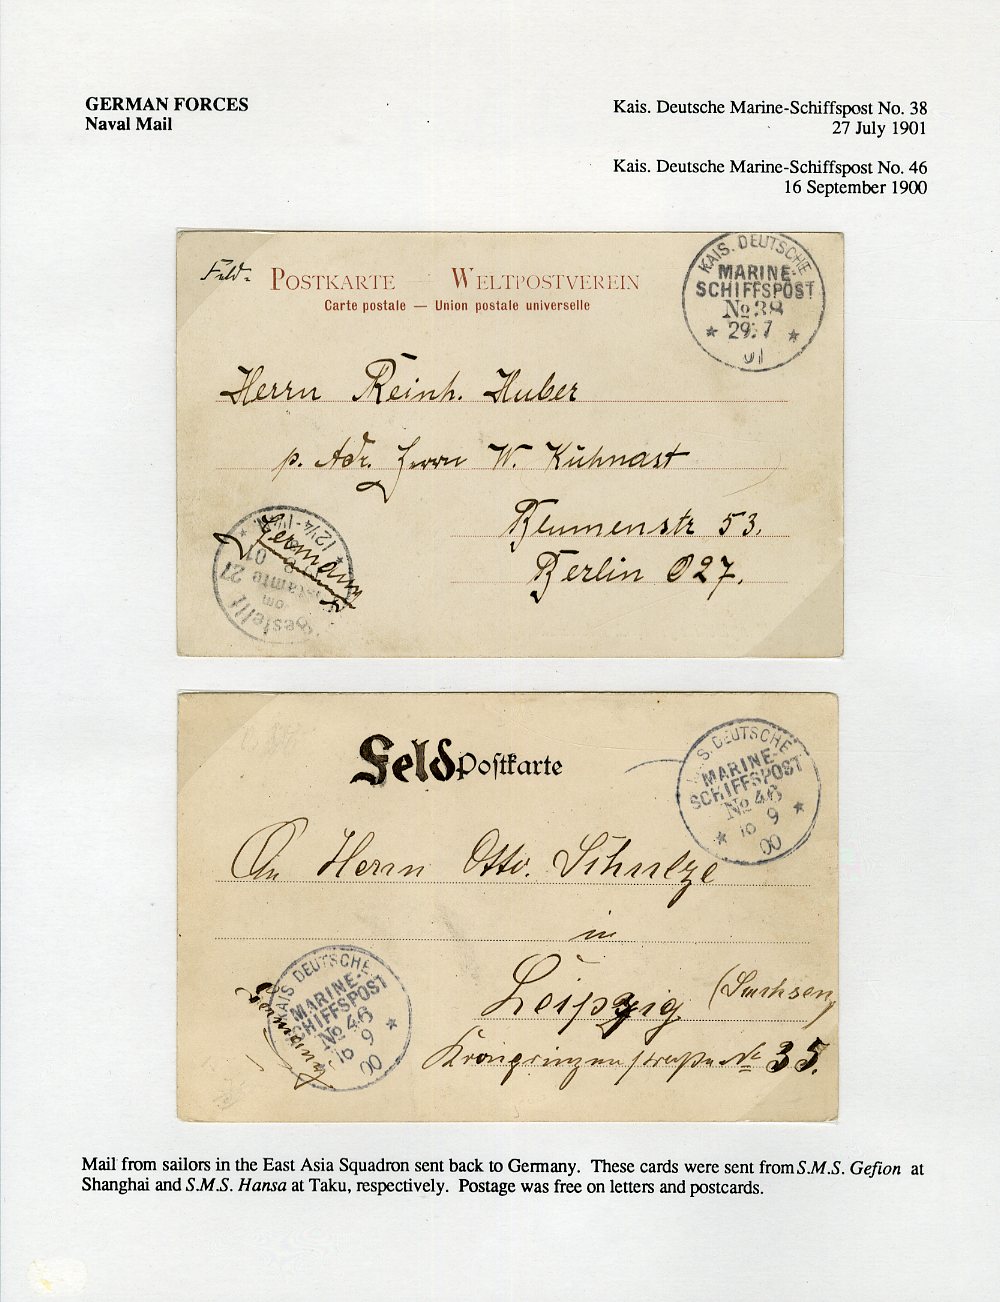 GERMAN FORCES
Naval Mail
Kais. Deutsche Marine-Schiffspost No. 38
27 July 1901
Kais. Deutsche Marine-Schiffspost No. 46
16 September 1900
Feld-
POSTKARTE — WELTPOSTVEREIN
Carte postale — Union postale universelle
KAIS. DEUTSCHE
MARINE-
SCHIFFSPOST
No 38
* 29. 7 *
01
Herrn Reinh. Huber
p. Adr. Herrn W. Kühnast
Blumenstr 53.
Berlin O27.
Germany
Bestellt
vom
Postamte 27
01
12¼-1½
FeldPostkarte
KAIS. DEUTSCHE
MARINE-
SCHIFFSPOST
No 46
* 16 9 *
00
An Herrn Otto. Schulze
in
Leipzig (Sachsen)
Kronprinzenstraße No 35.
KAIS. DEUTSCHE
MARINE-
SCHIFFSPOST
No 46
16 9 *
00
Germany
Mail from sailors in the East Asia Squadron sent back to Germany. These cards were sent from S.M.S. Gefion at
Shanghai and S.M.S. Hansa at Taku, respectively. Postage was free on letters and postcards.